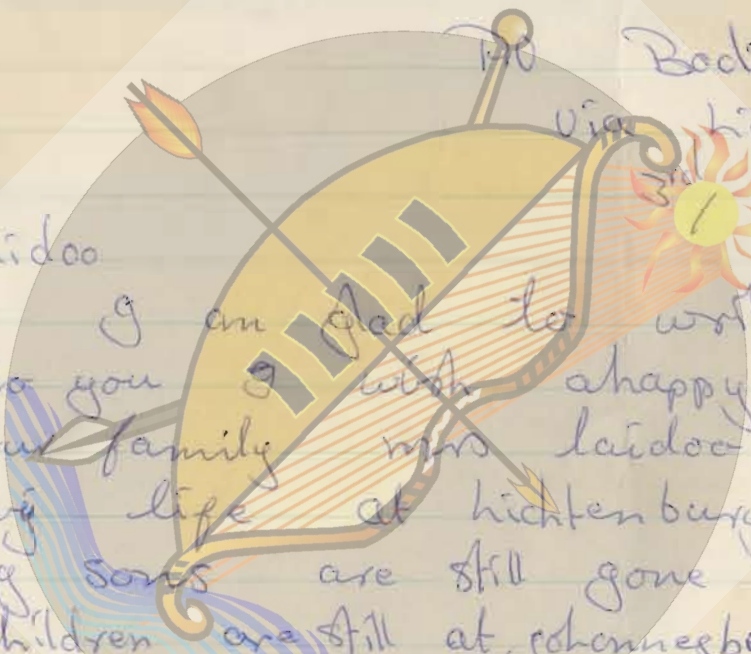 PO Bod
via Li
3rd 1
idoo
I am glad to wri
o you I wish ahappy
ur family mrs laidoo
y life at hichtenburg
g sons are still gone
hildren are still at johannesb